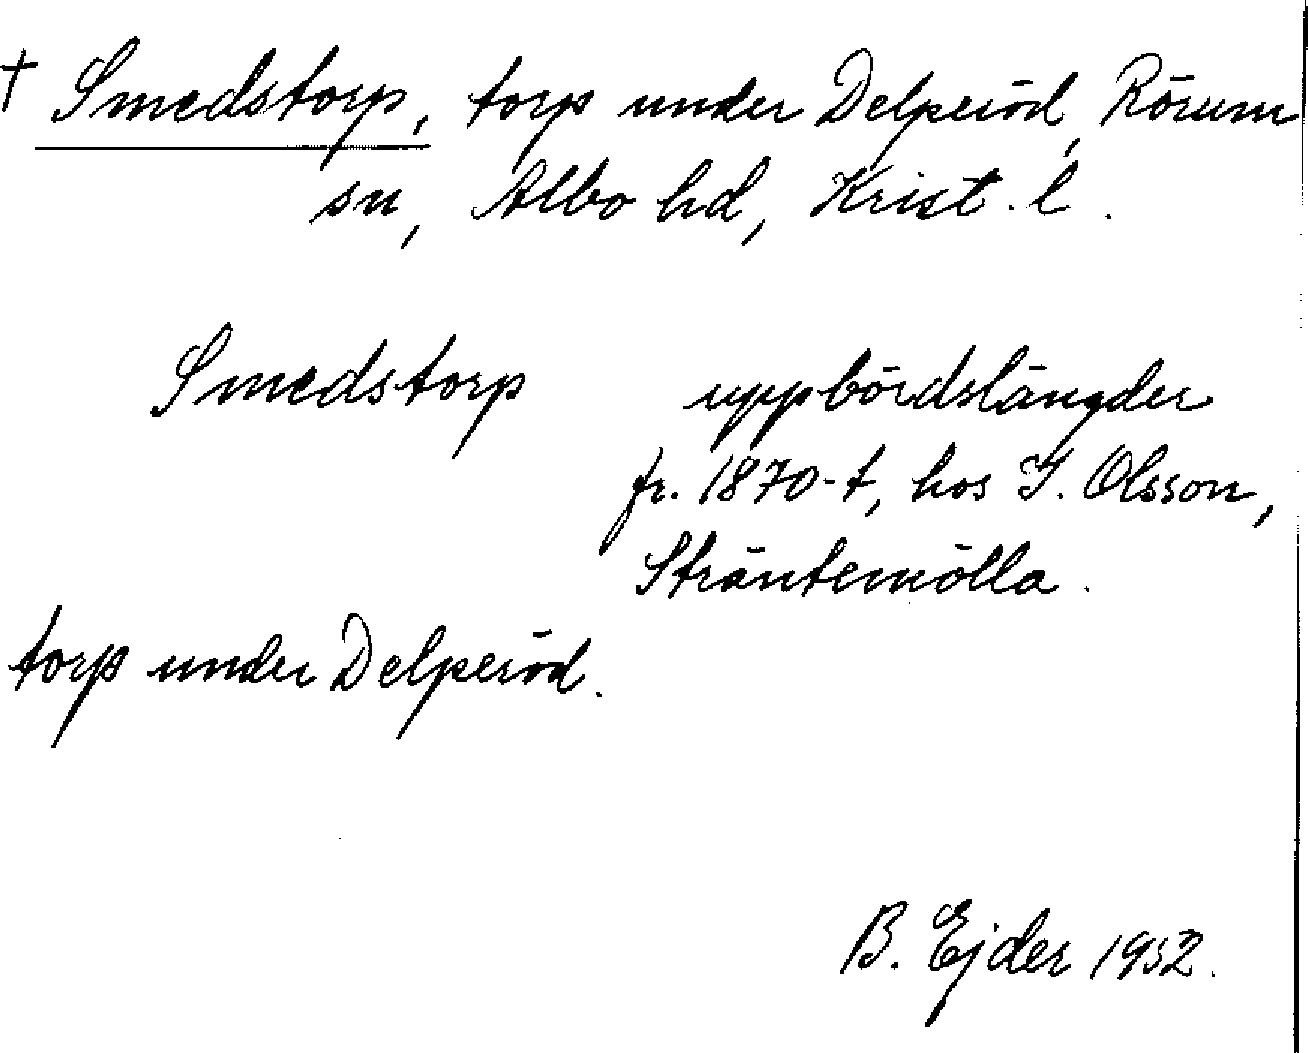 † Smedstorp, torp under Delperöd, Rörum
sn, Albo hd, Krist. l.
Smedstorp uppbördslängder
fr. 1870-t, hos I. Olsson,
Sträntemölla.
torp under Delperöd.
B. Ejder 1952.